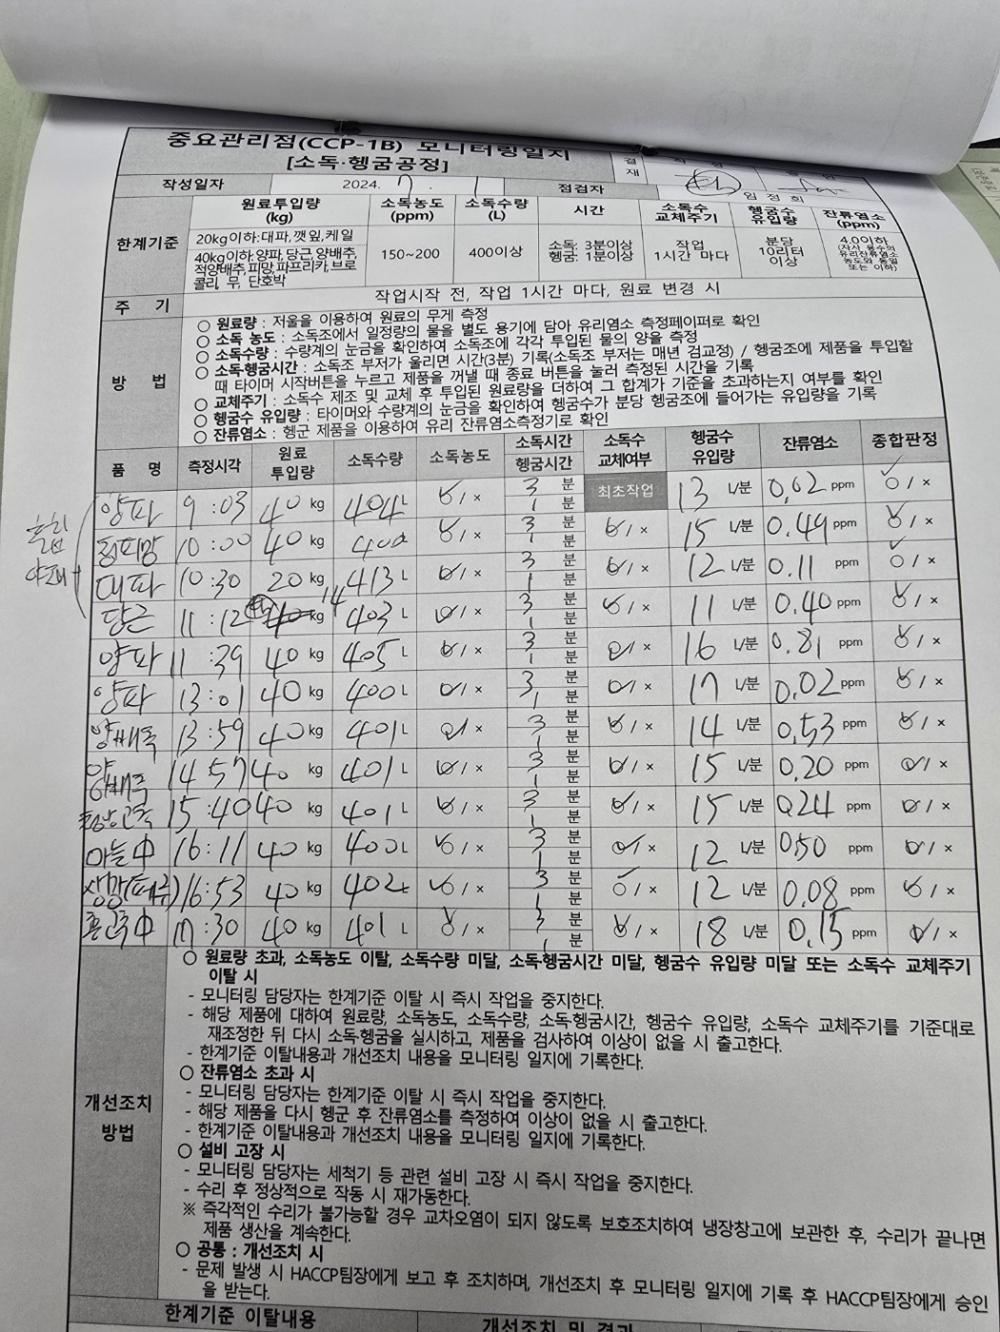 중요관리점(CCP-1B) 모니터링일지
[소독·헹굼공정]
결재
작성일자 2024. 7 . 1 점검자 임정희
한계기준
원료투입량 (kg) 소독농도 (ppm) 소독수량 (L) 시간 소독수 교체주기 헹굼수 유입량 잔류염소 (ppm)
20kg이하:대파,깻잎,케일
40kg이하:양파,당근,양배추,
적양배추,피망,파프리카,브로
콜리, 무, 단호박
150~200 400이상 소독: 3분이상 헹굼: 1분이상 작업 1시간 마다 분당 10리터 이상 4.0이하
(자사 용수의 유리잔류염소 농도와 동일 또는 이하)
주 기 작업시작 전, 작업 1시간 마다, 원료 변경 시
방 법
○ 원료량 : 저울을 이용하여 원료의 무게 측정
○ 소독 농도 : 소독조에서 일정량의 물을 별도 용기에 담아 유리염소 측정페이퍼로 확인
○ 소독수량 : 수량계의 눈금을 확인하여 소독조에 각각 투입된 물의 양을 측정
○ 소독헹굼시간 : 소독조 부저가 울리면 시간(3분) 기록(소독조 부저는 매년 검교정) / 헹굼조에 제품을 투입할
때 타이머 시작버튼을 누르고 제품을 꺼낼 때 종료 버튼을 눌러 측정된 시간을 기록
○ 교체주기 : 소독수 제조 및 교체 후 투입된 원료량을 더하여 그 합계가 기준을 초과하는지 여부를 확인
○ 헹굼수 유입량 : 타이머와 수량계의 눈금을 확인하여 헹굼수가 분당 헹굼조에 들어가는 유입량을 기록
○ 잔류염소 : 헹군 제품을 이용하여 유리 잔류염소측정기로 확인
품 명 측정시각 원료 투입량 소독수량 소독농도 소독시간 헹굼시간 소독수 교체여부 헹굼수 유입량 잔류염소 종합판정
양파 9 : 03 40 kg 404 L ○ / × 3 분 1 분 최초작업 13 L/분 0.02 ppm ○ / ×
청피망 10 : 00 40 kg 400 ○ / × 3 분 1 분 ○ / × 15 L/분 0.49 ppm ○ / ×
대파 10 : 30 20 kg 413 L ○ / × 3 분 1 분 ○ / × 12 L/분 0.11 ppm ○ / ×
당근 11 : 12 14 kg 403 L ○ / × 3 분 1 분 ○ / × 11 L/분 0.40 ppm ○ / ×
양파 11 : 39 40 kg 405 L ○ / × 3 분 1 분 ○ / × 16 L/분 0.81 ppm ○ / ×
양파 13 : 01 40 kg 400 L ○ / × 3 분 1 분 ○ / × 17 L/분 0.02 ppm ○ / ×
양배추 13 : 59 40 kg 401 L ○ / × 3 분 1 분 ○ / × 14 L/분 0.53 ppm ○ / ×
양배추 14 : 57 40 kg 401 L ○ / × 3 분 1 분 ○ / × 15 L/분 0.20 ppm ○ / ×
15 : 40 40 kg 401 L ○ / × 3 분 1 분 ○ / × 15 L/분 0.24 ppm ○ / ×
마늘中 16 : 11 40 kg 400 L ○ / × 3 분 1 분 ○ / × 12 L/분 0.50 ppm ○ / ×
16 : 53 40 kg 402 L ○ / × 3 분 1 분 ○ / × 12 L/분 0.08 ppm ○ / ×
홍고추中 17 : 30 40 kg 401 L ○ / × 3 분 1 분 ○ / × 18 L/분 0.15 ppm ○ / ×
개선조치 방법
○ 원료량 초과, 소독농도 이탈, 소독수량 미달, 소독·헹굼시간 미달, 헹굼수 유입량 미달 또는 소독수 교체주기
이탈 시
- 모니터링 담당자는 한계기준 이탈 시 즉시 작업을 중지한다.
- 해당 제품에 대하여 원료량, 소독농도, 소독수량, 소독·헹굼시간, 헹굼수 유입량, 소독수 교체주기를 기준대로
재조정한 뒤 다시 소독·헹굼을 실시하고, 제품을 검사하여 이상이 없을 시 출고한다.
- 한계기준 이탈내용과 개선조치 내용을 모니터링 일지에 기록한다.
○ 잔류염소 초과 시
- 모니터링 담당자는 한계기준 이탈 시 즉시 작업을 중지한다.
- 해당 제품을 다시 헹군 후 잔류염소를 측정하여 이상이 없을 시 출고한다.
- 한계기준 이탈내용과 개선조치 내용을 모니터링 일지에 기록한다.
○ 설비 고장 시
- 모니터링 담당자는 세척기 등 관련 설비 고장 시 즉시 작업을 중지한다.
- 수리 후 정상적으로 작동 시 재가동한다.
※ 즉각적인 수리가 불가능할 경우 교차오염이 되지 않도록 보호조치하여 냉장창고에 보관한 후, 수리가 끝나면
제품 생산을 계속한다.
○ 공통 : 개선조치 시
- 문제 발생 시 HACCP팀장에게 보고 후 조치하며, 개선조치 후 모니터링 일지에 기록 후 HACCP팀장에게 승인
을 받는다.
한계기준 이탈내용 개선조치 및 결과